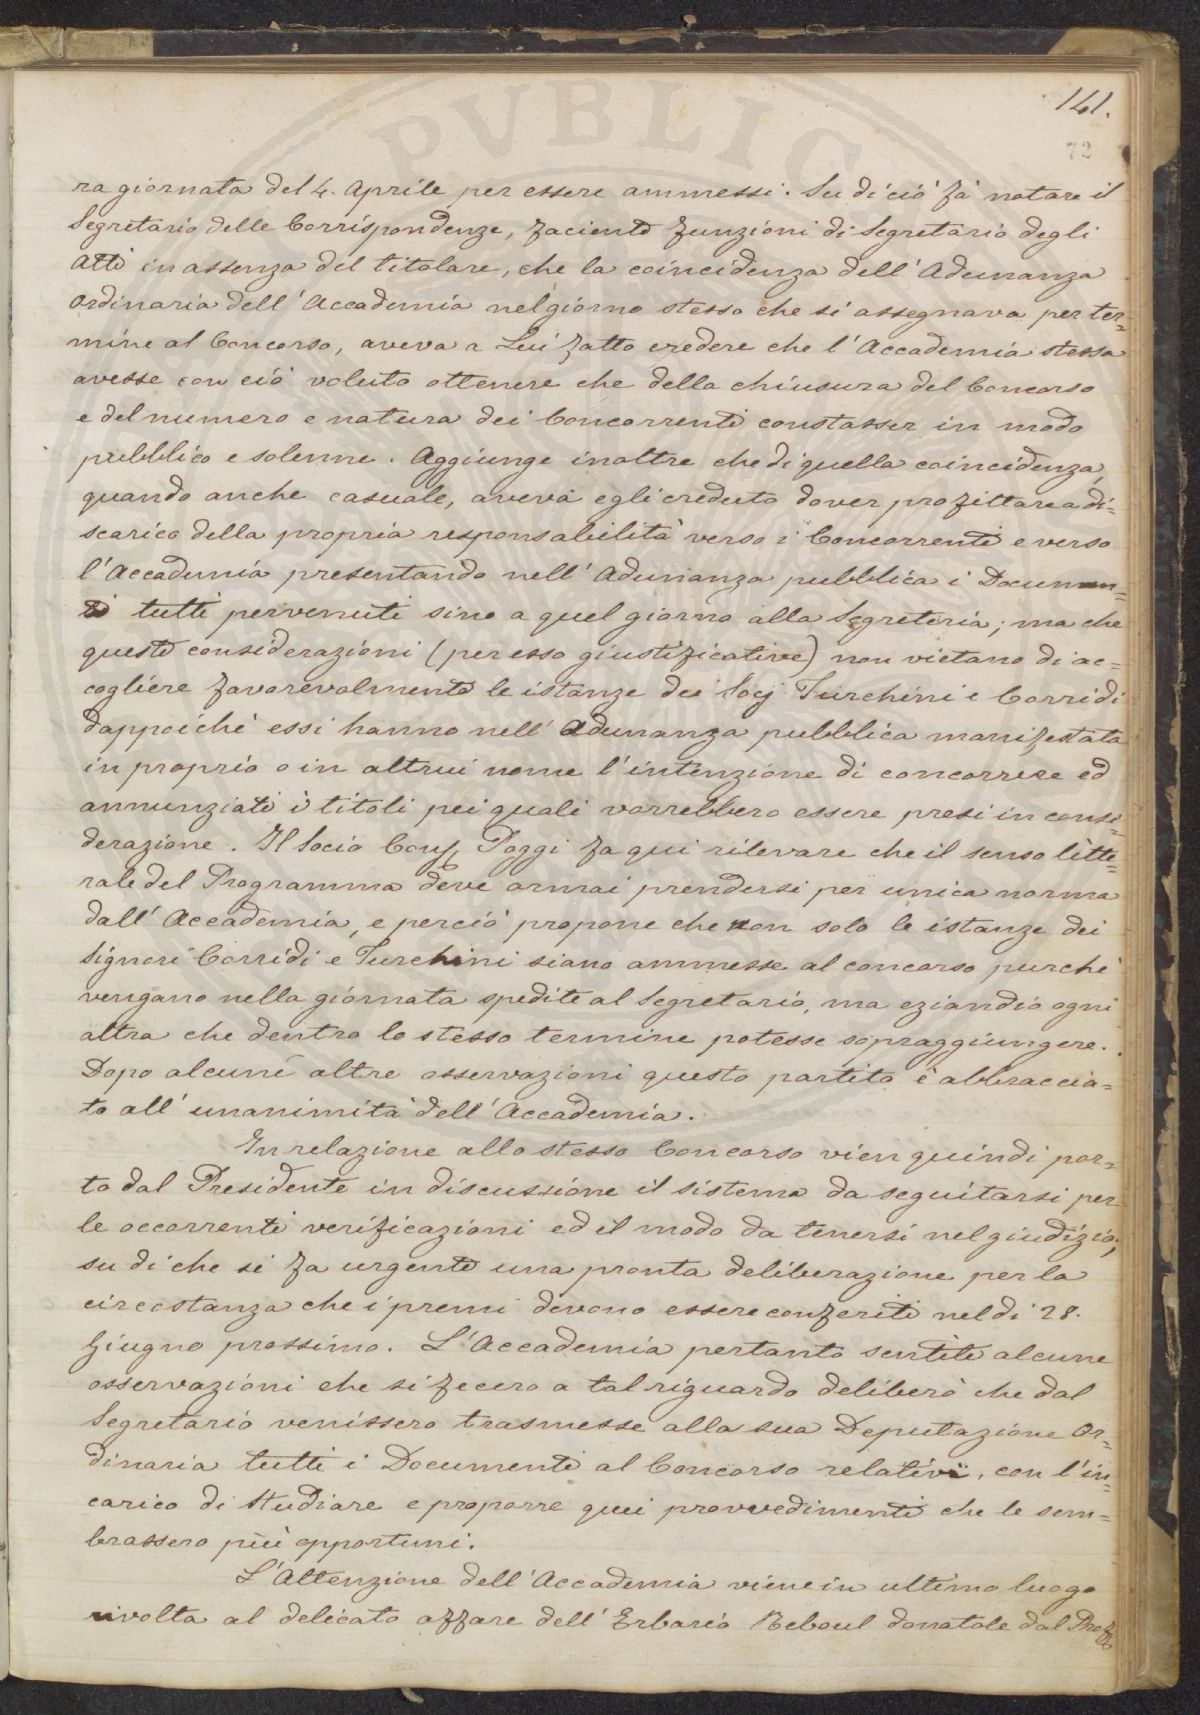 141.
72
ra giornata del 4. Aprile per essere ammessi. Su di ciò fà notare il
Segretario delle Corrispondenze, faciente funzioni di Segretario degli
Atti in assenza del titolare, che la coincidenza dell' Adunanza
Ordinaria dell' Accademia nel giorno stesso che si assegnava per ter=
mine al Concorso, aveva a Lui fatto credere che l' Accademia stessa
avesse con ciò voluto ottenere che della chiusura del Concorso
e del numero e natura dei Concorrenti constasser in modo
pubblico e solenne. Aggiunge inoltre che di quella coincidenza,
quando anche casuale, aveva egli creduto dover profittare a di=
scarico della propria responsabilità verso i Concorrenti e verso
l' Accademia presentando nell' Adunanza pubblica i Documen=
ti tutti pervenuti sino a quel giorno alla Segreteria; ma che
queste considerazioni (per esso giustificative) non vietano di ac=
cogliere favorevolmente le istanze dei Socj Turchini e Corridi
dappoichè essi hanno nell' Adunanza pubblica manifestata
in proprio o in altrui nome l' intenzione di concorrere ed
annunziati i titoli pei quali vorrebbero essere presi in consi=
derazione. Il Socio Conf Poggi fa qui rilevare che il senso litte=
rale del Programma deve ormai prendersi per unica norma
dall' Accademia, e perciò propone che non solo le istanze dei
Signori Corridi e Turchini siano ammesse al concorso purchè
vengano nella giornata spedite al Segretario, ma eziandio ogni
altra che dentro lo stesso termine potesse sopraggiungere.
Dopo alcune altre osservazioni questo partito è abbraccia=
to all' unanimità dell' Accademia.
In relazione allo stesso Concorso vien quindi por=
to dal Presidente in discussione il sistema da seguitarsi per
le occorrenti verificazioni ed il modo da tenersi nel giudizio;
su di che si fa urgente una pronta deliberazione per la
circostanza che i premi devono essere conferiti nel dì 28.
Giugno prossimo. L' Accademia pertanto sentite alcune
osservazioni che si fecero a tal riguardo deliberò che dal
Segretario venissero trasmesse alla sua Deputazione Or=
dinaria tutti i Documenti al Concorso relativi, con l' in=
carico di studiare e proporre quei provvedimenti che le sem=
brassero più opportuni.
L' Attenzione dell' Accademia viene in ultimo luogo
rivolta al delicato affare dell' Erbario Reboul donatole dal Prof
PVBLIC